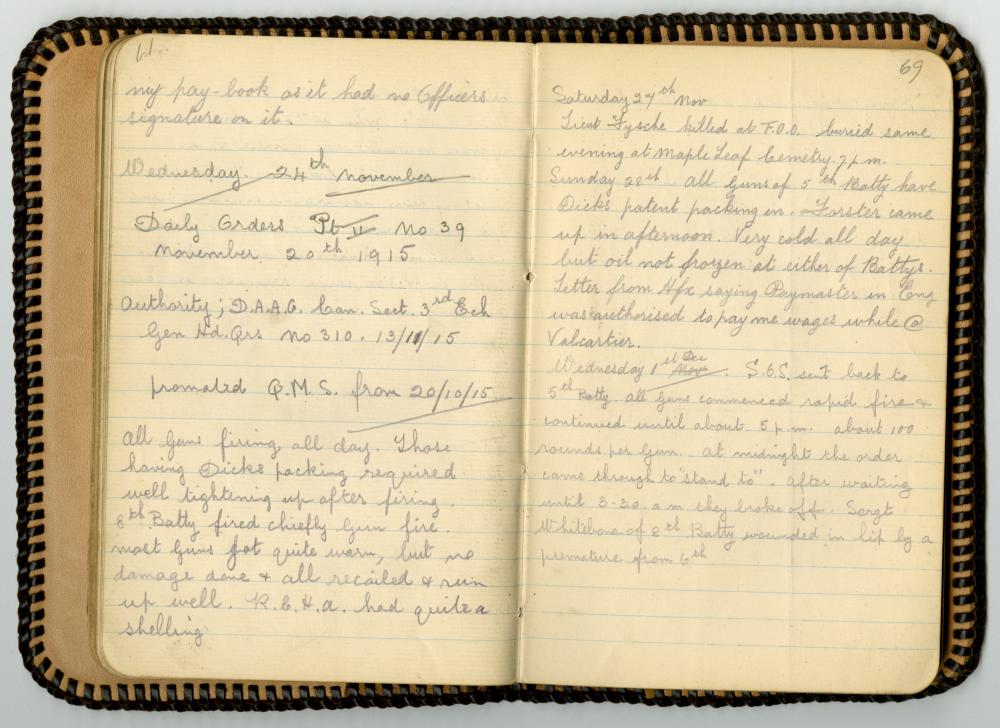 61
my pay-book as it had no Officers
signature on it.
Wednesday. 24th november
Daily Orders Pt II No 39
november 20th 1915
Authority; D.A.A.G. Can. Sect. 3rd Ech
Gen Hd. Qrs No 310. 13/11/15
promoted Q.M.S. from 20/10/15
All Guns firing all day. Those
having Dicks packing required
well tightening up after firing.
8th Batty fired chiefly Gun fire.
most Guns got quite warm, but no
damage done & all recoiled & run
up well. R.C.H.A. had quite a
shelling
69
Saturday 27th Nov
Lieut Fysche killed at F.O.O. buried same
evening at Maple Leaf Cemetry. 7 p.m.
Sunday 28th. All Guns of 5th Batty have
Dicks patent packing in. Forster came
up in afternoon. Very cold all day
but oil not frozen at either of Battys.
Letter from Hfx saying Paymaster in Eng
was authorised to pay me wages while @
Valcartier.
Wednesday 1st Dec Nov. S.G.S. sent back to
5th Batty. All Guns commenced rapid fire &
continued until about 5 p.m. about 100
rounds per Gun. At midnight the order
came through to "stand to". After waiting
until 3-30. a.m they broke off. Sergt
Whitebone of 8th Batty wounded in hip by a
premature from 6th